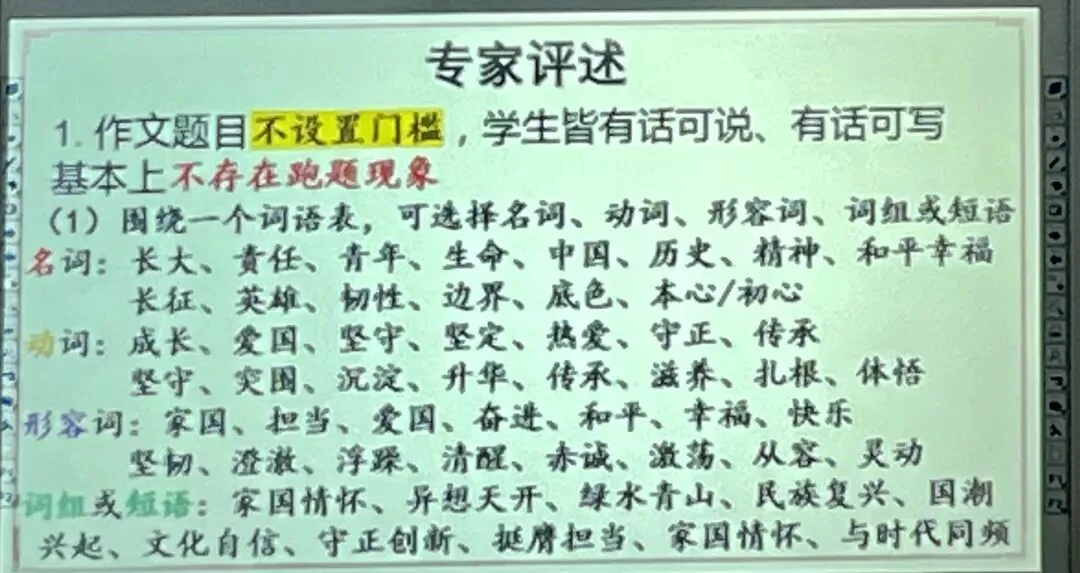 专家评述
1. 作文题目不设置门槛，学生皆有话可说、有话可写
基本上不存在跑题现象
（1）围绕一个词语表，可选择名词、动词、形容词、词组或短语
名词：长大、责任、青年、生命、中国、历史、精神、和平幸福
长征、英雄、韧性、边界、底色、本心/初心
动词：成长、爱国、坚守、坚定、热爱、守正、传承
坚守、突围、沉淀、升华、传承、滋养、扎根、体悟
形容词：家国、担当、爱国、奋进、和平、幸福、快乐
坚韧、澄澈、浮躁、清醒、赤诚、激荡、从容、灵动
词组或短语：家国情怀、异想天开、绿水青山、民族复兴、国潮
兴起、文化自信、守正创新、挺膺担当、家国情怀、与时代同频